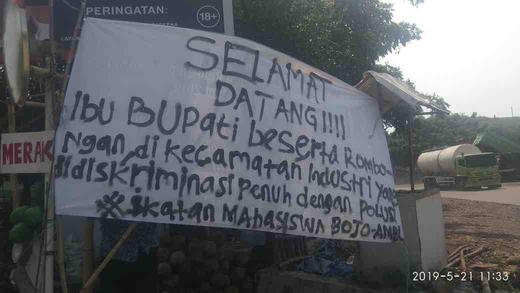 PERINGATAN:
18+
SELAMAT
DATANG!!!!
Ibu BUPati beserta Rombo-
Ngan di Kecamatan Industri yang
didiskriminasi Penuh dengan Polusi
※ Ikatan MAHASISWA BOJO-
MERAK
2019-5-21 11:33